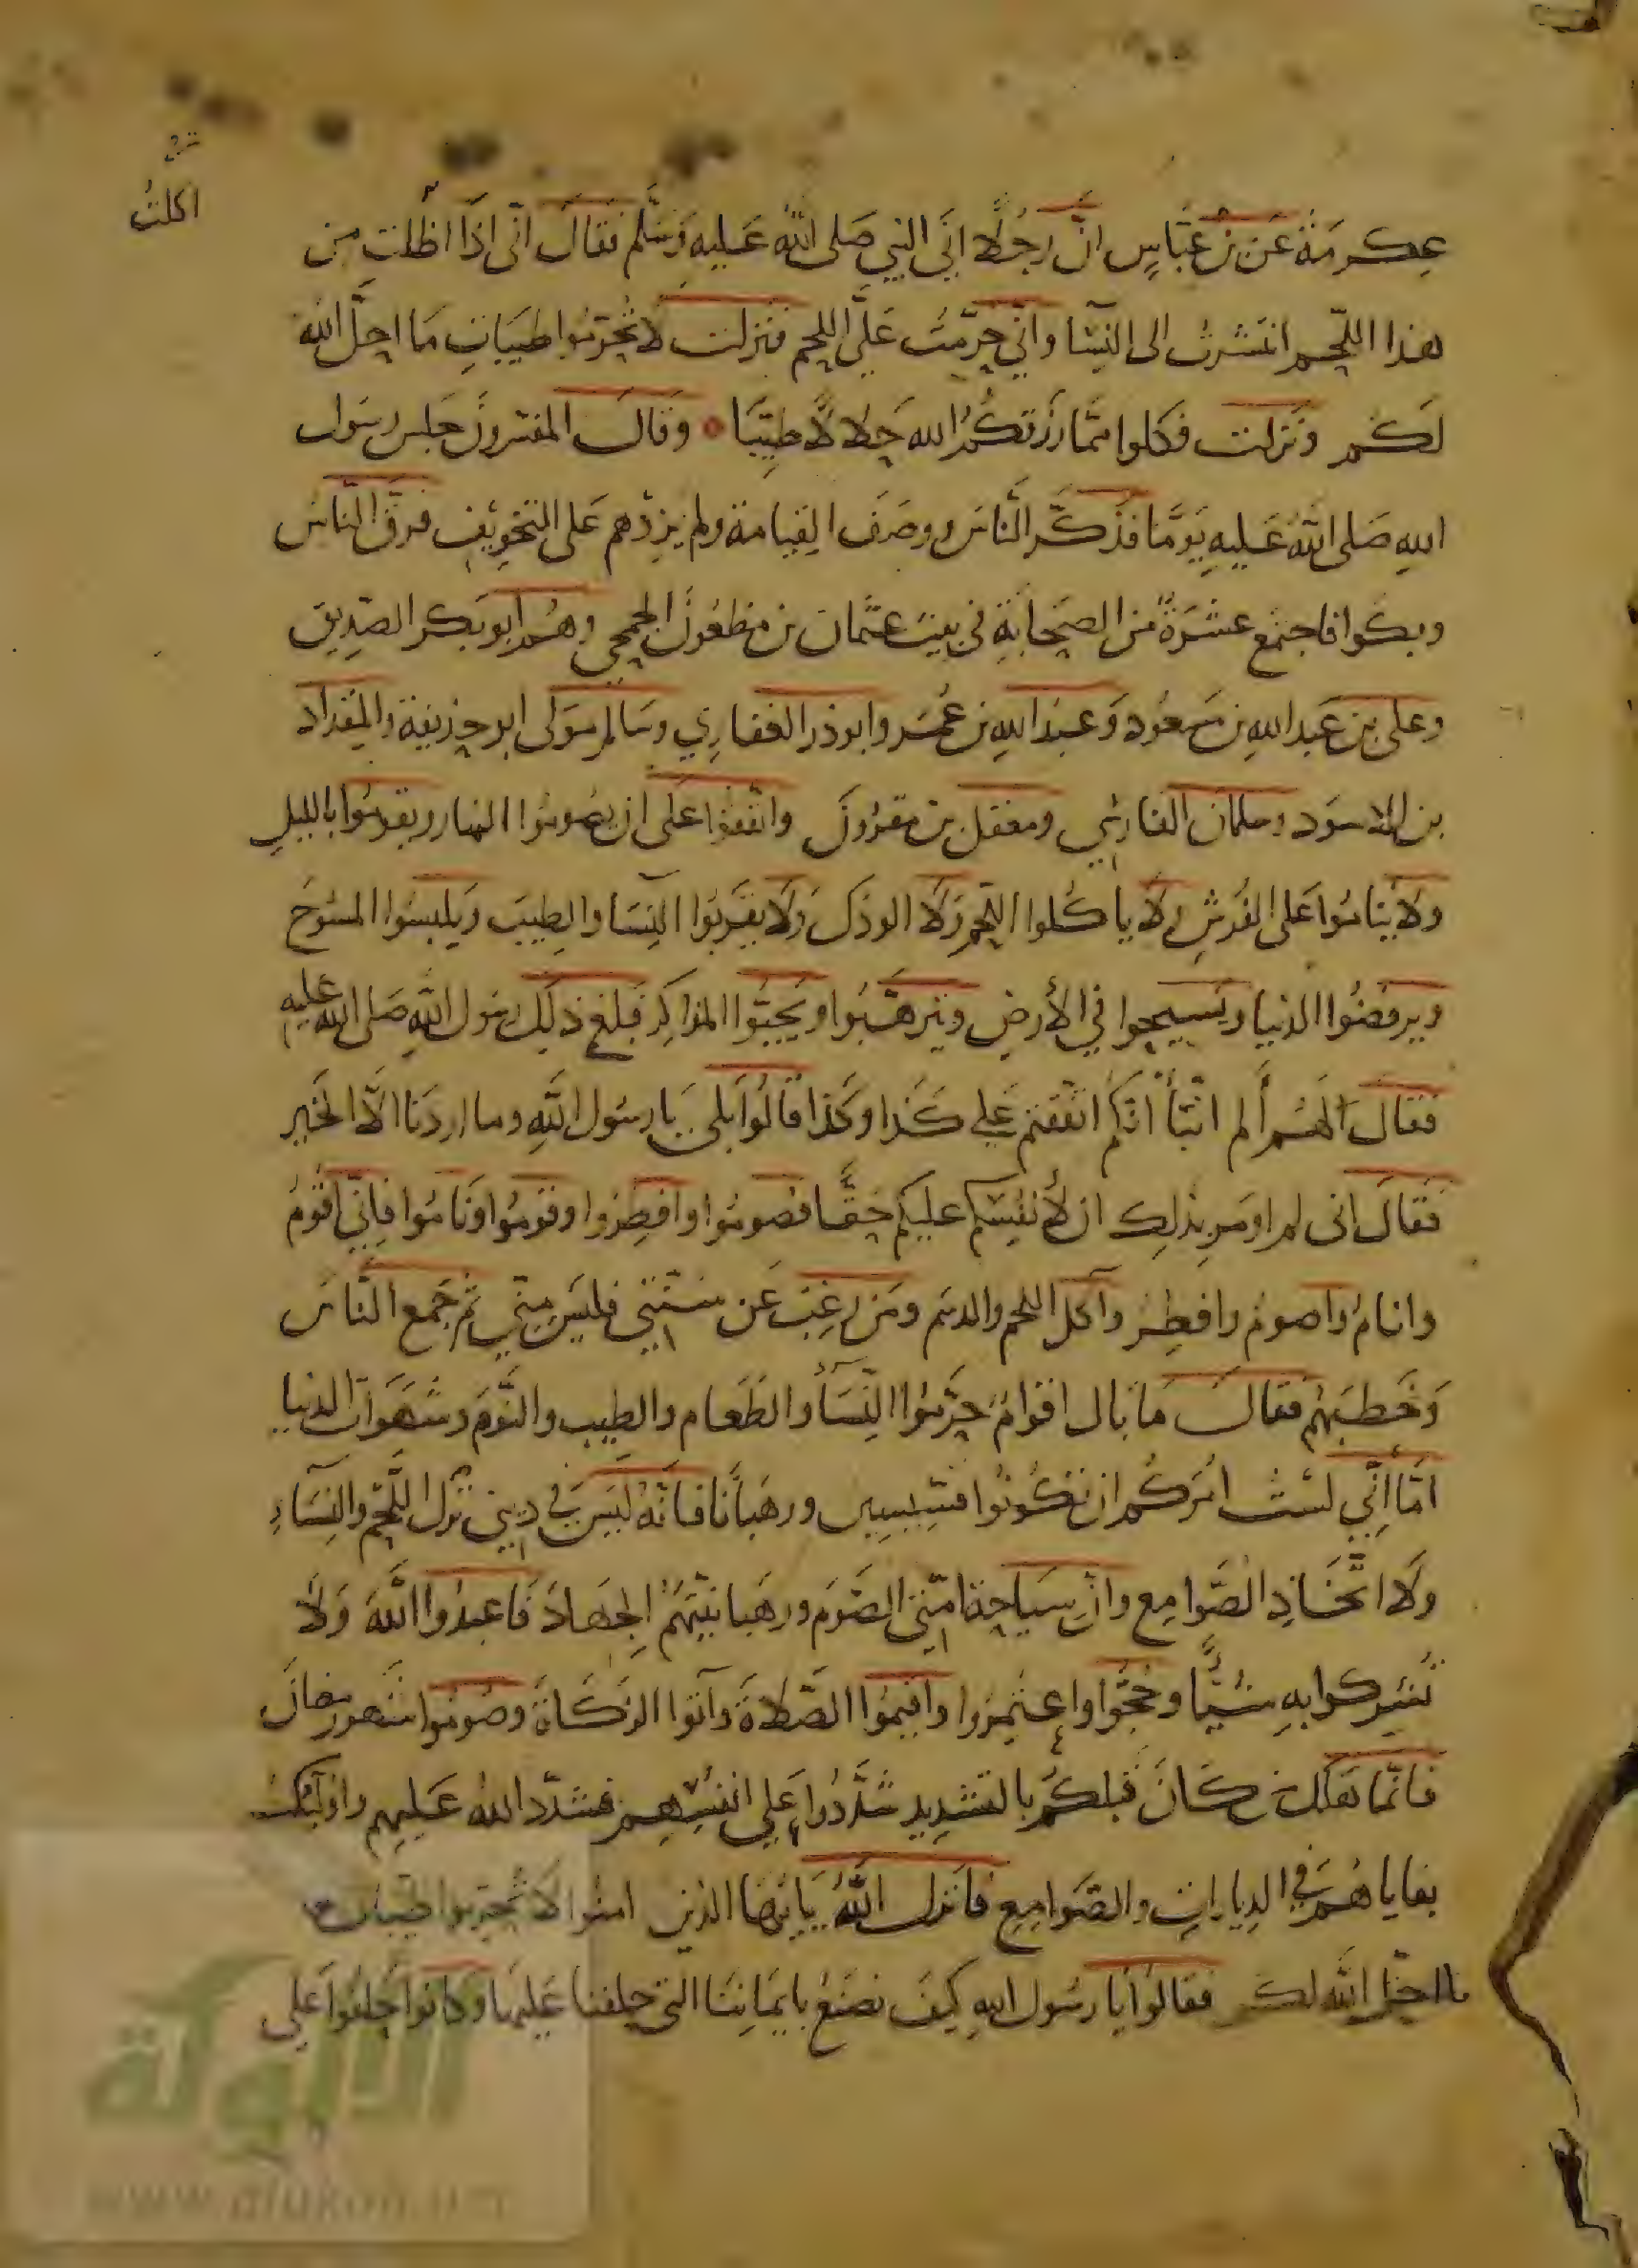 اكلتُ
عكرمة عن بن عباسٍ انّ رجلًا اتَى النبي صَلى اللهُ عَليهِ وَسَلّم فقالَ انّى اذَا اظلت من
هذا اللّحم انتشرتُ الى النِّسَا وانّي حرّمتُ عَليَّ اللحم فنزلت لا تُحرّمُوا طيبَاتِ مَا احلَّ اللهُ
لكم ونَزلت فكلوا ممَّا رَزقكُمُ الله حَلالًا طيِّبَا وقال المفسرونَ جلس رسَول
اللهِ صَلى اللهُ عَليهِ يَومًا فذكّر النّاسَ ووصَفَ القيامة ولم يزدهم عَلى التخويفِ فرقّ النّاس
وبكوا فاجتمع عشرَةٌ من الصحَابَةِ في بيت عثمان بن مظعُون الجمحي وهُم ابو بكر الصّدِيق
وعلى بن عَبد اللهِ بن مسعُود وَعبدَ اللهِ بن عُمَر وابو ذر الغفاري وسَالم مولى ابو حذيفة والمقداد
بن الاسوَد وسلمان الفارسي ومعقل بن مقرون واتّفقوا عَلى ان يصُومُوا النهار ويقومُوا بالليلِ
ولا يَنامُوا عَلى الفُرشِ ولا ياكُلوا اللحم ولا الودَك ولا يقرَبُوا النِسَا والطِيبَ ويلبسُوا المسُوحَ
ويرفضُوا الدنيا ويَسيحوا في الأرضِ ويترهّبُوا ويَجبُّوا المذاكِر فبلغَ ذلِك رسُول اللهِ صَلى الله عليه
فقال لهُم ألم انبّأ انّكم اتّفقتم عَلى كذا وكذا قالُوا بَلى يَا رسُول اللهِ وما اردَنا الّا الخَير
فقالَ انى لم اومر بذلِك ان لأنفسكم عليكم حَقًّا فصُومُوا وافطِروا وقومُوا ونَامُوا فانِّي اقومُ
وانامُ واصومُ وافطِر وآكل اللحم والدسَم ومَن رغِبَ عَن سُنّتي فليسَ مِنّي ثم جَمع النّاسَ
وَخَطبَهُم فقالَ مَا بَال اقوامٌ حَرّمُوا النّسَاْ والطَعام والطِيب والنَّوم وشَهَوَات الدنيا
امّا انِّي لسْتُ امُركُم ان تكُونُوا قسِّيسِين ورهبَانًا فانّهُ ليسَ في ديني ترْك اللّحم والنِسَاءِ
ولا اتّخَاذِ الصَّوامِع وانّ سيَاحة امّتي الصَّومَ ورهَبانيّتهُم الجهادَ فاعبدُوا اللهَ وَلا
تُشركوا بهِ شيًّا وحُجّوا واعتمرُوا واقيمُوا الصّلاةَ وآتوا الزكَاةَ وصُومُوا شهر رمضانَ
فانّما هَلك من كانَ قبلكُم بالتشدِيد شدّدُوا عَلى انفسهم فشدّد اللهُ عَليهم واولئك
بقاياهُم في الدِيارات والصّوامِع فانزل اللهُ يَا أيّهَا الذين امنُوا لا تُحرّمُوا طيبَات
ما احلّ اللهُ لكم فقالُوا يَا رسُول اللهِ كيفَ نصنَعُ بايمَانِنَا التي حلفنا عَليهَا وكانوا حَلفُوا عَلى
الألوكة
www.alukah.net